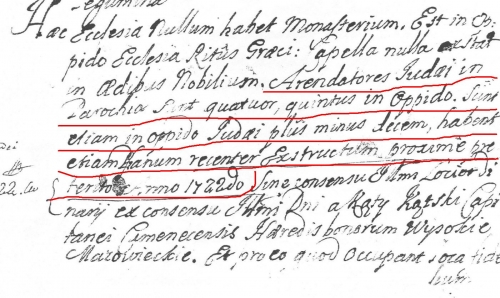 Legumina
Hæc Ecclesia Nullum habet Monasterium. Est in Op-
pido Ecclesia Ritûs Græci: Capella nulla extat
in Ædibus Nobilium. Arendatores Judæi in
Parochia sunt quatuor, quintus in Oppido. Sunt
etiam in oppido Judæi plus minus decem, habent
etiam fanum recenter Exstructum proximè præ
terito Anno 1722do Sine consensu Illmi Locior Di
narij ex consensu Illmi Dni a Kąty Kątski Capi
tanei Camenecensis Hæredis bonorum Wysokie
Mazowieckie. Et pro eo quod Occupant loca
22
lium